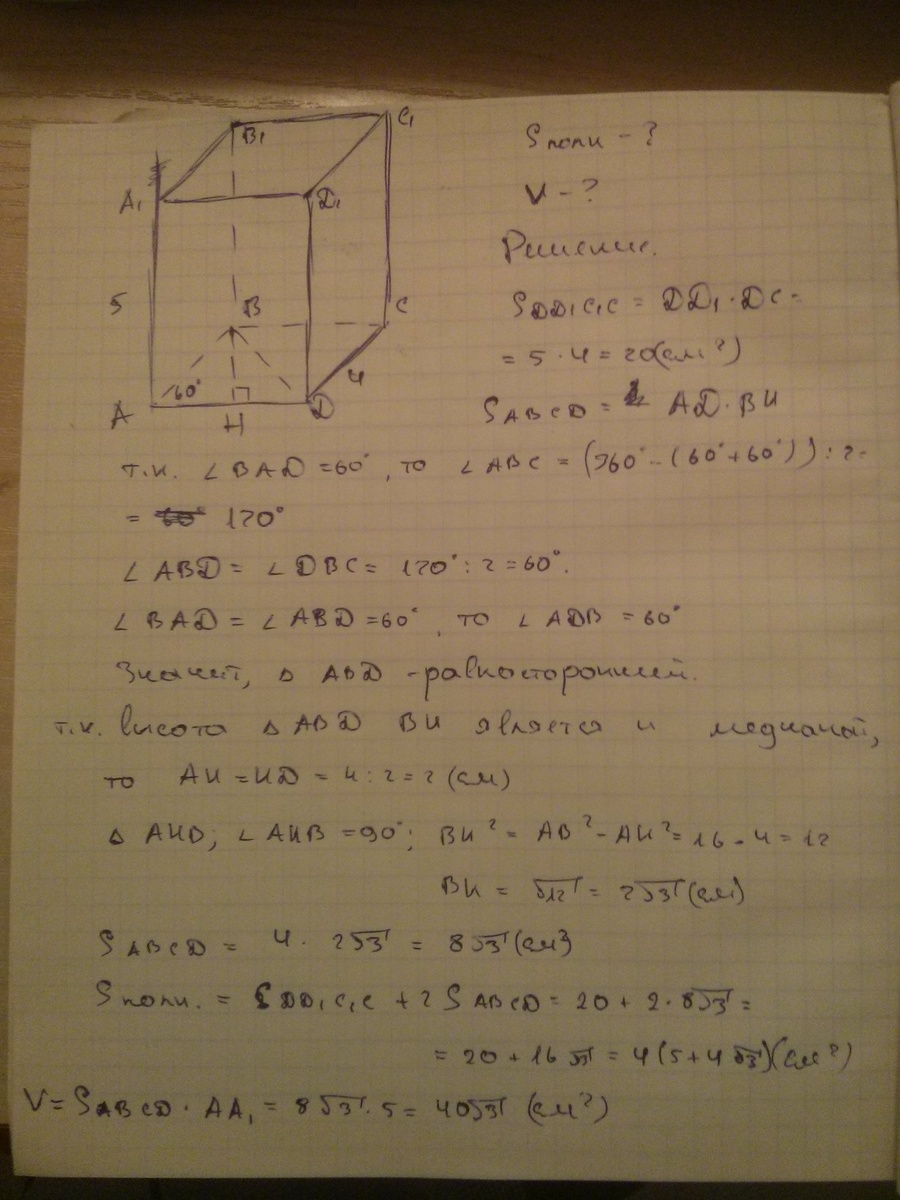 B₁
C₁
Sполн - ?
A₁
D₁
V - ?
Решение.
5
B
C
SDD₁C₁C = DD₁ · DC =
= 5 · 4 = 20(см²)
60°
4
A
H
D
SABCD = AD · BH
т.к. ∠ BAD = 60°, то ∠ ABC = (360° - (60° + 60°)) : 2 =
= 120°
∠ ABD = ∠ DBC = 120° : 2 = 60°.
∠ BAD = ∠ ABD = 60°, то ∠ ADB = 60°
Значит, △ ABD - равносторонний.
т.к. высота △ ABD BH является и медианой,
то AH = HD = 4 : 2 = 2 (см)
△ AHB; ∠ AHB = 90°; BH² = AB² - AH² = 16 - 4 = 12
BH = √12 = 2√3 (см)
SABCD = 4 · 2√3 = 8√3 (см²)
Sполн. = SDD₁C₁C + 2 SABCD = 20 + 2 · 8√3 =
= 20 + 16√3 = 4(5 + 4√3)(см²)
V = SABCD · AA₁ = 8√3 · 5 = 40√3 (см²)